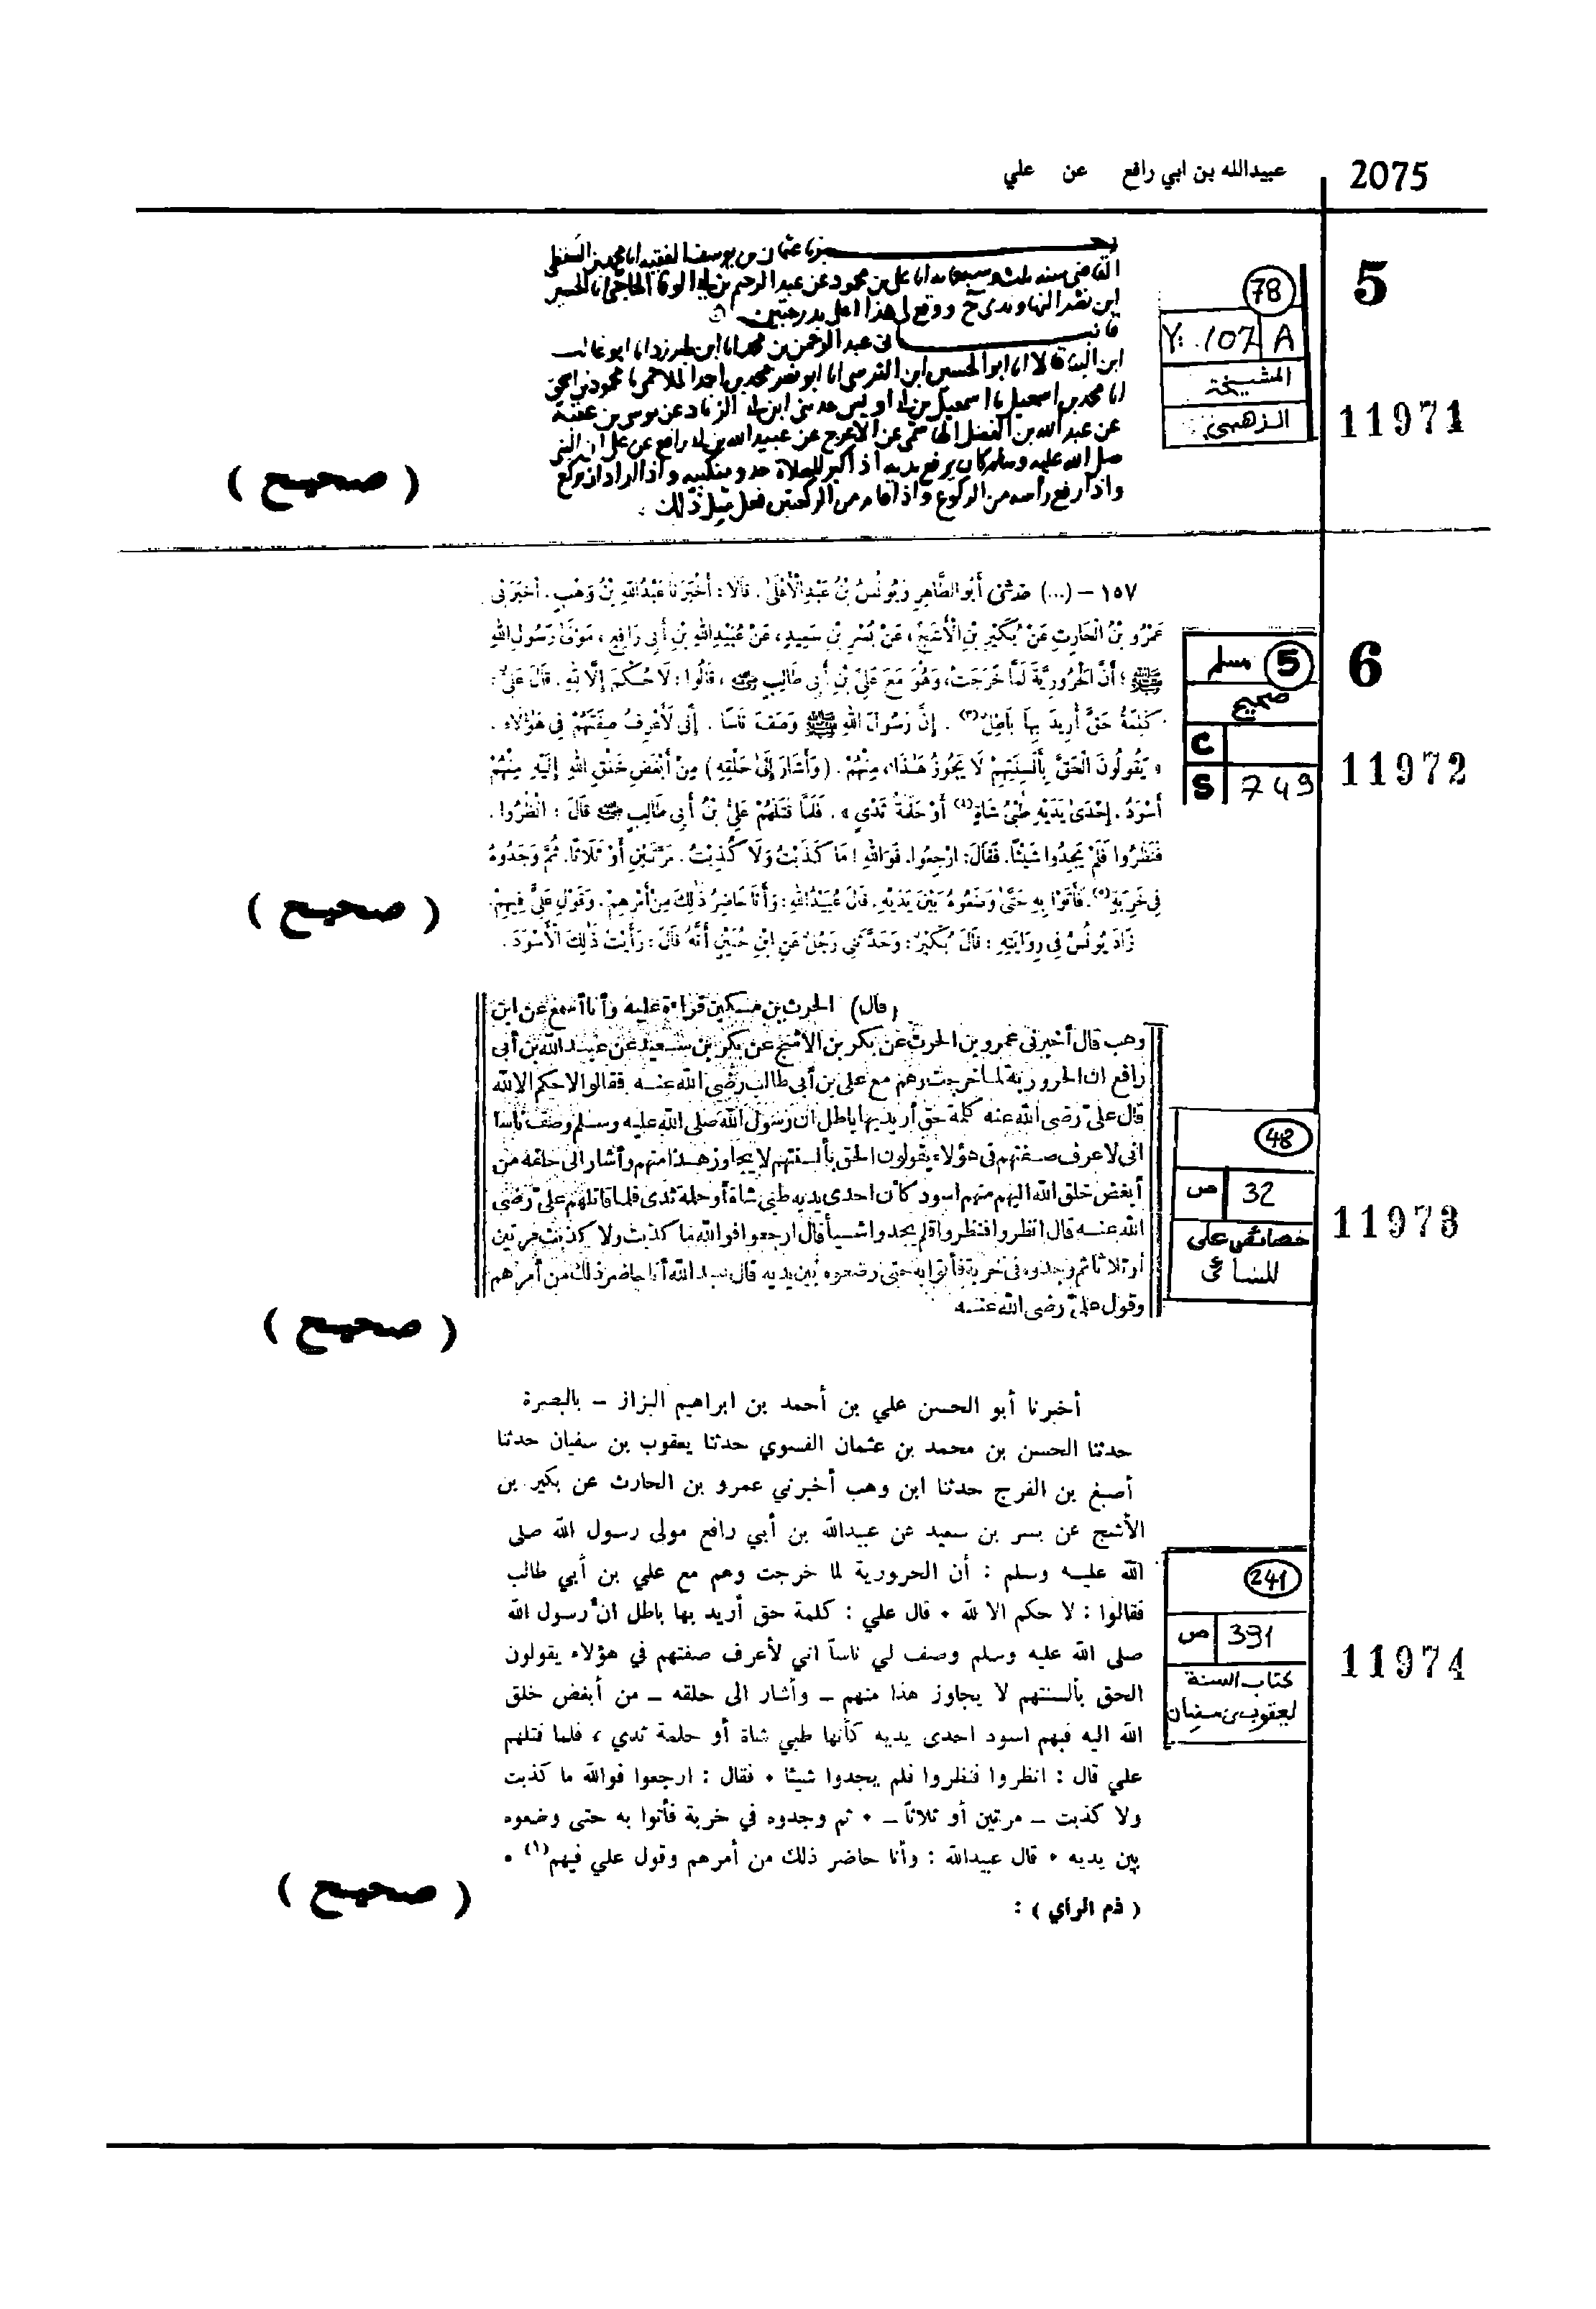 2075
عبيدالله بن ابي رافع عن علي
5
78
107 A
المشيخة
الذهبي
11971
القاضي سنة
ابن نصر النهاوندي ح ووقع لي هذا اعلى بدرجتين
انا محمد بن اسمعيل
عن عبد الله بن الفضل الهاشمي عن الاعرج عن عبيد الله بن ابي رافع عن علي ان النبي
صلى الله عليه وسلم كان يرفع يديه اذا كبر للصلاة حذو منكبيه واذا اراد ان يركع
واذا رفع راسه من الركوع واذا قام من الركعتين فعل مثل ذلك
( صحيح )
6
5 مسلم
صحيح
C
S 749
11972
١٥٧ – (...) حدثني أَبُو الطَّاهِرِ وَيُونُسُ بْنُ عَبْدِ الْأَعْلَىٰ . قَالَا : أَخْبَرَنَا عَبْدُ اللهِ بْنُ وَهْبٍ . أَخْبَرَنِي
عَمْرُو بْنُ الْحَارِثِ عَنْ بُكَيْرِ بْنِ الْأَشَجِّ ، عَنْ بُسْرِ بْنِ سَعِيدٍ ، عَنْ عُبَيْدِ اللهِ بْنِ أَبِي رَافِعٍ ، مَوْلَىٰ رَسُولِ اللهِ
ﷺ ؛ أَنَّ الْحَرُورِيَّةَ لَمَّا خَرَجَتْ ، وَهُوَ مَعَ عَلِيِّ بْنِ أَبِي طَالِبٍ رضي الله عنه ، قَالُوا : لَا حُكْمَ إِلَّا لِلهِ . قَالَ عَلِيٌّ :
كَلِمَةُ حَقٍّ أُرِيدَ بِهَا بَاطِلٌ(٣) . إِنَّ رَسُولَ اللهِ ﷺ وَصَفَ نَاسًا . إِنِّي لَأَعْرِفُ صِفَتَهُمْ فِي هَٰؤُلَاءِ .
« يَقُولُونَ الْحَقَّ بِأَلْسِنَتِهِمْ لَا يَجُوزُ هَٰذَا ، مِنْهُمْ . ( وَأَشَارَ إِلَىٰ حَلْقِهِ ) مِنْ أَبْغَضِ خَلْقِ اللهِ إِلَيْهِ مِنْهُمْ
أَسْوَدُ . إِحْدَىٰ يَدَيْهِ طُبْيُ شَاةٍ(٤) أَوْ حَلَمَةُ ثَدْيٍ » . فَلَمَّا قَتَلَهُمْ عَلِيُّ بْنُ أَبِي طَالِبٍ رضي الله عنه قَالَ : انْظُرُوا .
فَنَظَرُوا فَلَمْ يَجِدُوا شَيْئًا . فَقَالَ : ارْجِعُوا . فَوَاللهِ ! مَا كَذَبْتُ وَلَا كُذِبْتُ . مَرَّتَيْنِ أَوْ ثَلَاثًا . ثُمَّ وَجَدُوهُ
فِي خَرِبَةٍ(٥) . فَأَتَوْا بِهِ حَتَّىٰ وَضَعُوهُ بَيْنَ يَدَيْهِ . قَالَ عُبَيْدُ اللهِ : وَأَنَا حَاضِرُ ذَٰلِكَ مِنْ أَمْرِهِمْ . وَقَوْلِ عَلِيٍّ فِيهِمْ .
زَادَ يُونُسُ فِي رِوَايَتِهِ : قَالَ بُكَيْرٌ : وَحَدَّثَنِي رَجُلٌ عَنِ ابْنِ حُنَيْنٍ أَنَّهُ قَالَ : رَأَيْتُ ذَٰلِكَ الْأَسْوَدَ .
( صحيح )
48
ص 32
خصائص علي
للنسائي
11973
(قال) الحرث بن مسكين قراءة عليه وأنا أسمع عن ابن
وهب قال أخبرني عمرو بن الحرث عن بكر بن الاشج عن بكر بن سعيد عن عبيد الله بن أبي
رافع ان الحرورية لما خرجت وهم مع علي بن أبي طالب رضي الله عنه فقالوا لا حكم الا لله
قال علي رضي الله عنه كلمة حق أريد بها باطل ان رسول الله صلى الله عليه وسلم وصف ناسا
اني لاعرف صفتهم في هؤلاء يقولون الحق بألسنتهم لا يجاوز هذا منهم وأشار الى حلقه من
أبغض خلق الله اليهم منهم اسود كأن احدى يديه طبي شاة أو حلمة ثدي فلما قاتلهم علي رضي
الله عنه قال انظروا فنظروا فلم يجدوا شيأ قال ارجعوا فوالله ما كذبت ولا كذبت مرتين
أو ثلاثا ثم وجدوه في خربة فأتوا به حتى وضعوه بين يديه قال عبد الله أنا حاضر ذلك من أمرهم
وقول علي رضي الله عنه
( صحيح )
241
ص 391
كتاب السنة
ليعقوب بن سفيان
11974
أخبرنا أبو الحسن علي بن أحمد بن ابراهيم البزاز – بالبصرة
حدثنا الحسن بن محمد بن عثمان الفسوي حدثنا يعقوب بن سفيان حدثنا
أصبغ بن الفرج حدثنا ابن وهب أخبرني عمرو بن الحارث عن بكير بن
الأشج عن بسر بن سعيد عن عبيدالله بن أبي رافع مولى رسول الله صلى
الله عليه وسلم : أن الحرورية لما خرجت وهم مع علي بن أبي طالب
فقالوا : لا حكم الا لله . قال علي : كلمة حق أريد بها باطل ان رسول الله
صلى الله عليه وسلم وصف لي ناساً اني لأعرف صفتهم في هؤلاء يقولون
الحق بألسنتهم لا يجاوز هذا منهم – وأشار الى حلقه – من أبغض خلق
الله اليه فيهم اسود احدى يديه كأنها طبي شاة أو حلمة ثدي ، فلما قتلهم
علي قال : انظروا فنظروا فلم يجدوا شيئا . فقال : ارجعوا فوالله ما كذبت
ولا كذبت – مرتين أو ثلاثاً – . ثم وجدوه في خربة فأتوا به حتى وضعوه
بين يديه . قال عبيدالله : وأنا حاضر ذلك من أمرهم وقول علي فيهم(١) .
( ذم الرأي ) :
( صحيح )